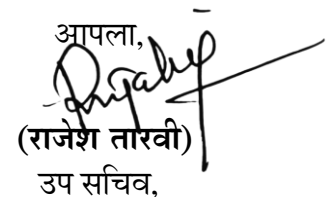 आपला,
(राजेश तारवी)
उप सचिव,